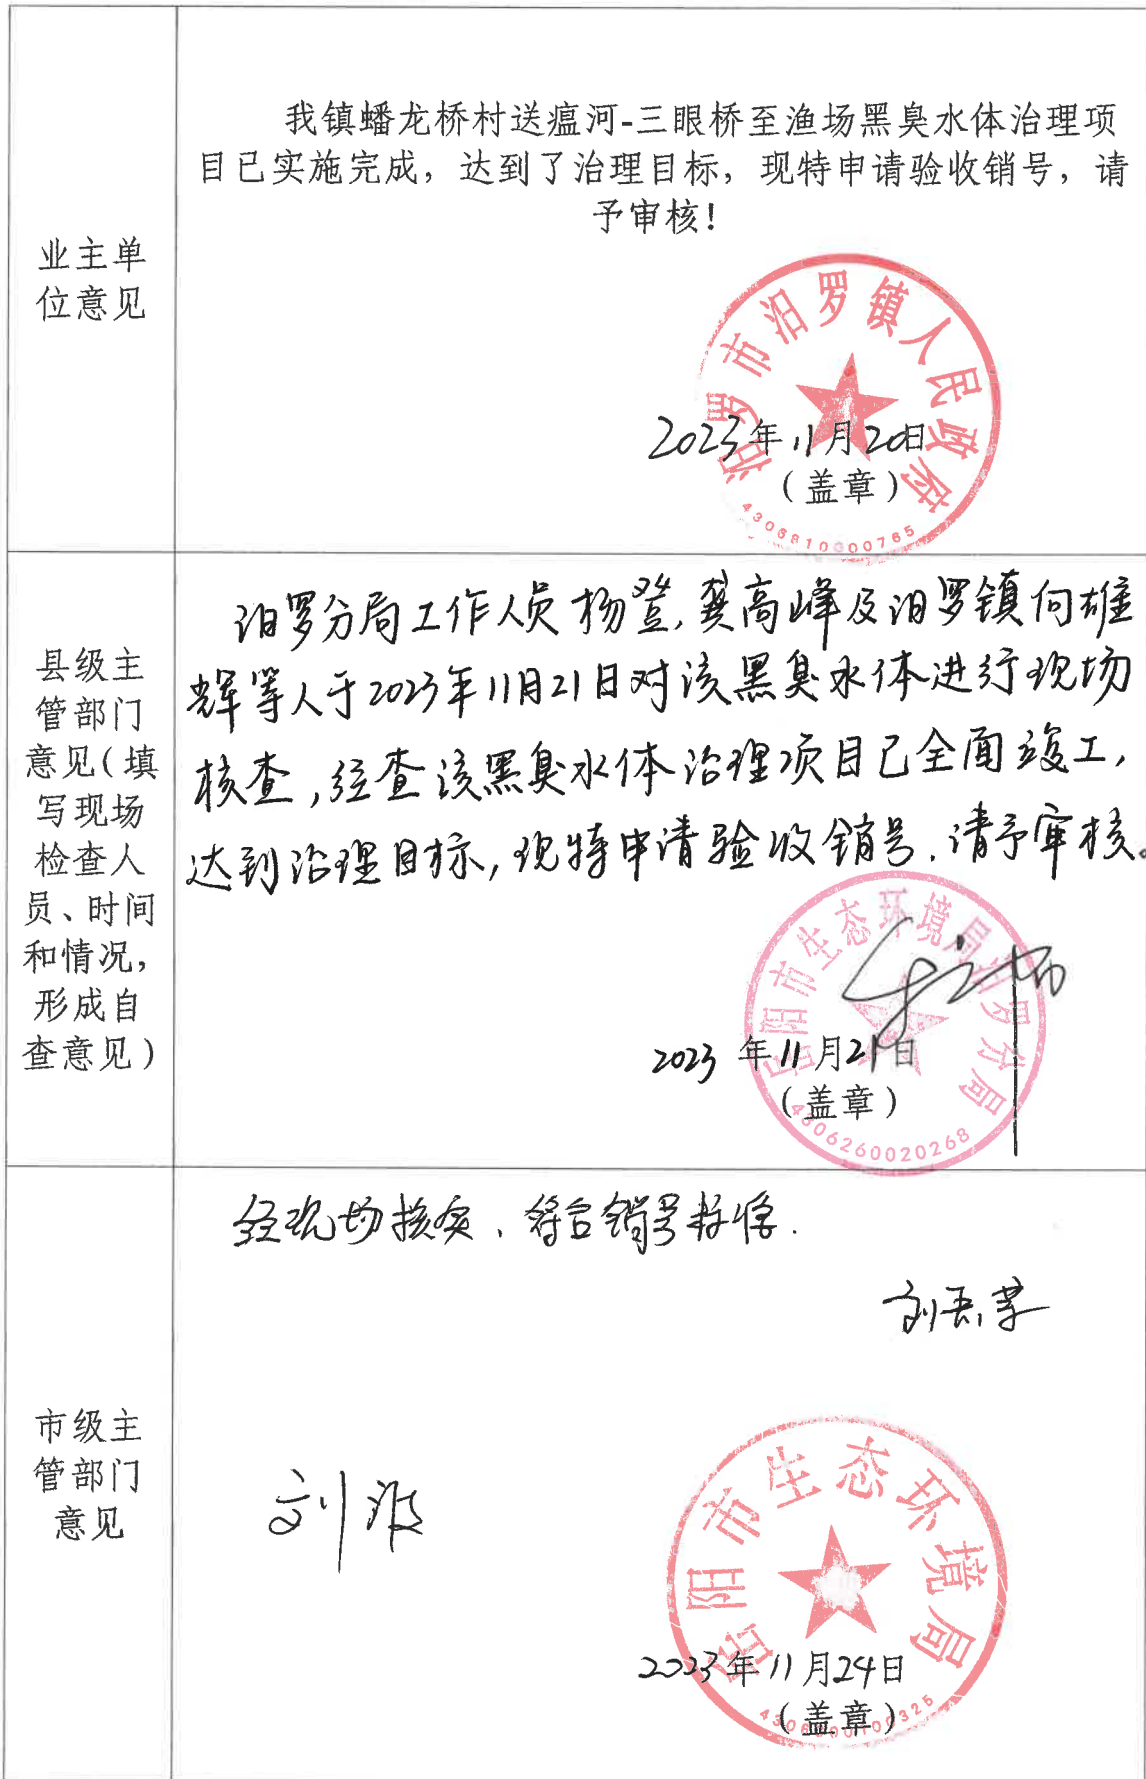 业主单
位意见
我镇蟠龙桥村送瘟河-三眼桥至渔场黑臭水体治理项
目已实施完成，达到了治理目标，现特申请验收销号，请
予审核！
汨罗市汨罗镇人民政府
2023年11月20日
（盖章）
4306810000765
县级主
管部门
意见（填
写现场
检查人
员、时间
和情况，
形成自
查意见）
汨罗分局工作人员杨登，龚高峰及汨罗镇何雄
辉等人于2023年11月21日对该黑臭水体进行现场
核查，经查该黑臭水体治理项目已全面竣工，
达到治理目标，现特申请验收销号，请予审核。
岳阳市生态环境局汨罗分局
2023年11月21日
（盖章）
4306260020268
市级主
管部门
意见
经现场核实，符合销号标准.
刘
刘波
岳阳市生态环境局
2023年11月24日
（盖章）